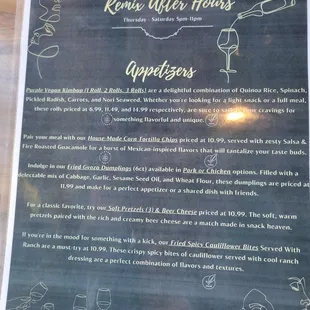 Remix After Hours
Thursday - Saturday 5pm-11pm
Appetizers
Purple Vegan Kimbap (1 Roll, 2 Rolls, 3 Rolls) are a delightful combination of Quinoa Rice, Spinach,
Pickled Radish, Carrots, and Nori Seaweed. Whether you're looking for a light snack or a full meal,
these rolls priced at 6.99, 11.49, and 14.99 respectively, are sure to satisfy your cravings for
something flavorful and unique.
Pair your meal with our House-Made Corn Tortilla Chips priced at 10.99, served with zesty Salsa &
Fire Roasted Guacamole for a burst of Mexican-inspired flavors that will tantalize your taste buds.
Indulge in our Fried Gyoza Dumplings (6cs) available in Pork or Chicken options. Filled with a
delectable mix of Cabbage, Garlic, Sesame Seed Oil, and Wheat Flour, these dumplings are priced at
11.99 and make for a perfect appetizer or a shared dish with friends.
For a classic favorite, try our Soft Pretzels (3) & Beer Cheese priced at 10.99. The soft, warm
pretzels paired with the rich and creamy beer cheese are a match made in snack heaven.
If you're in the mood for something with a kick, our Fried Spicy Cauliflower Bites Served With
Ranch are a must-try at 10.99. These crispy spicy bites of cauliflower served with cool ranch
dressing are a perfect combination of flavors and textures.